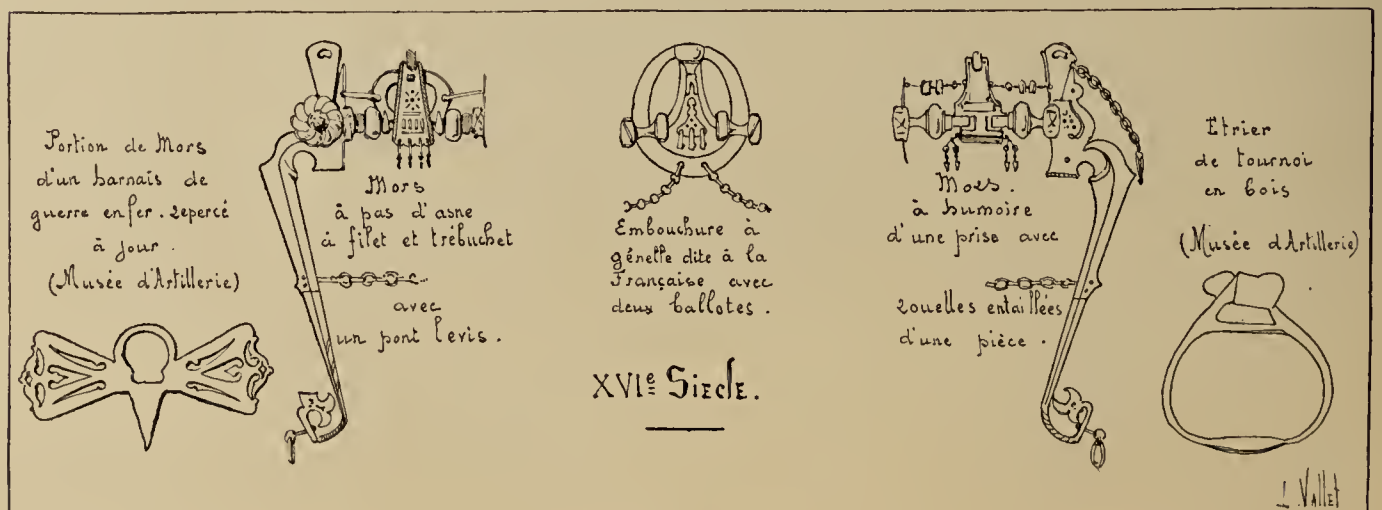 Portion de Mors
d'un harnais de
guerre en fer. repercé
à jour.
(Musée d'Artillerie)
Mors
à pas d'asne
à filet et trébuchet
avec
un pont levis.
Embouchure à
génette dite à la
Française avec
deux ballotes.
XVIe Siecle.
Mors.
à humoire
d'une prise avec
rouelles entaillées
d'une pièce.
Etrier
de tournoi
en bois
(Musée d'Artillerie)
L. Vallet